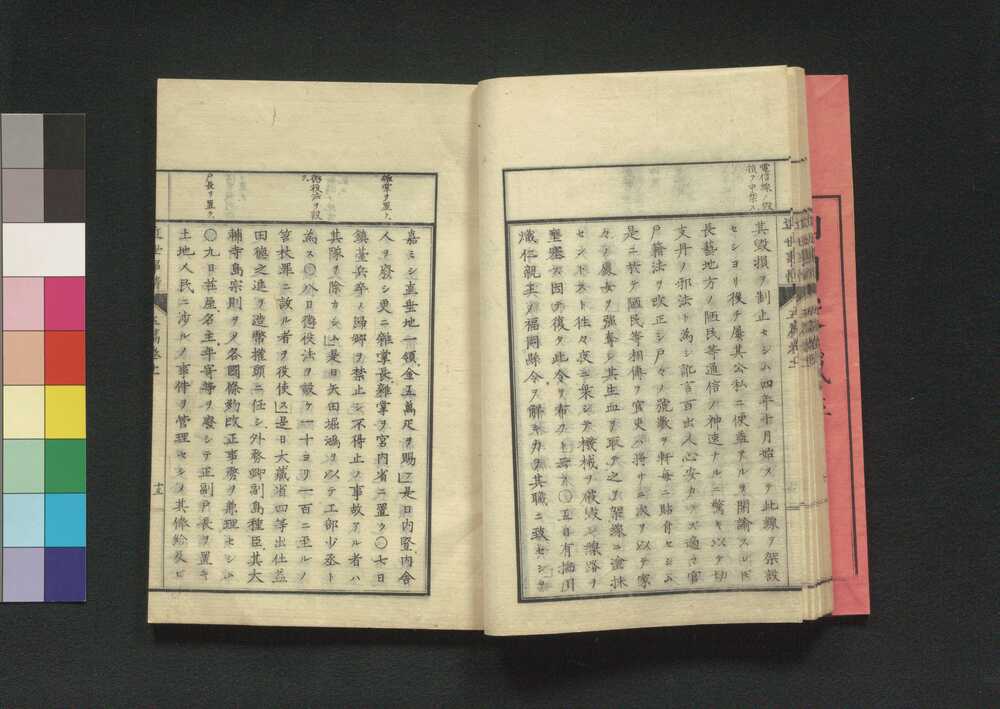 電信線ノ毀
損ヲ中禁ス
其毀損ヲ制止セシム四年十月始メテ此線ヲ架設
セシヨリ後チ屢其公私ニ便益アルヲ開諭スレ𪜈
長藝地方ノ陋民等通信ノ神速ナルニ驚キ以テ切
支丹ノ邪法ト為シ訛言百出人心安カラス適マ官
戸籍法ヲ改正シ戸々ノ號數ヲ軒毎ニ貼付セシム
是ニ於テ陋民等相傳ヲ官吏ハ將サニ之ヲ以テ家
々ノ處女ヲ強奪シ其生血ヲ取テ之ヲ架線ニ塗抹
セントスト往々夜ニ乗シテ機械ヲ破毀シ線路ヲ
壅塞ス因テ復タ此令ヲ布ク
五日有栖川
熾仁親王ノ福岡縣令ヲ解キ力ヲ其職ニ致セシヲ
嘉ミシ直垂地一領金五萬疋ヲ賜フ是日内豎内舎
雜掌ヲ置ク
人ヲ廢シ更ニ雜掌長雜掌ヲ宮内省ニ置ク〇七日
鎮臺兵卒ノ歸郷ヲ禁止シ不得止ノ事故アル者ハ
其隊ヲ除カシム是日矢田堀鴻ヲ以テ工部少丞ト
懲役法ヲ設
ク
為ス〇八日懲役法ヲ設ケ一十ヨリ一百ニ至ルノ
笞杖罪ニ該ル者ヲ役使ス是日大藏省四等出仕益
田徳之進ヲ造幣權頭ニ任シ外務卿副島種臣其大
輔寺島宗則ヲシテ各國條約改正事務ヲ兼理セシム
戸長ヲ置ク
〇九日莊屋名主年寄等ヲ廢シテ正副戸長ヲ置キ
土地人民ニ渉ルノ事件ヲ管理セシメ其俸給及ヒ
十五